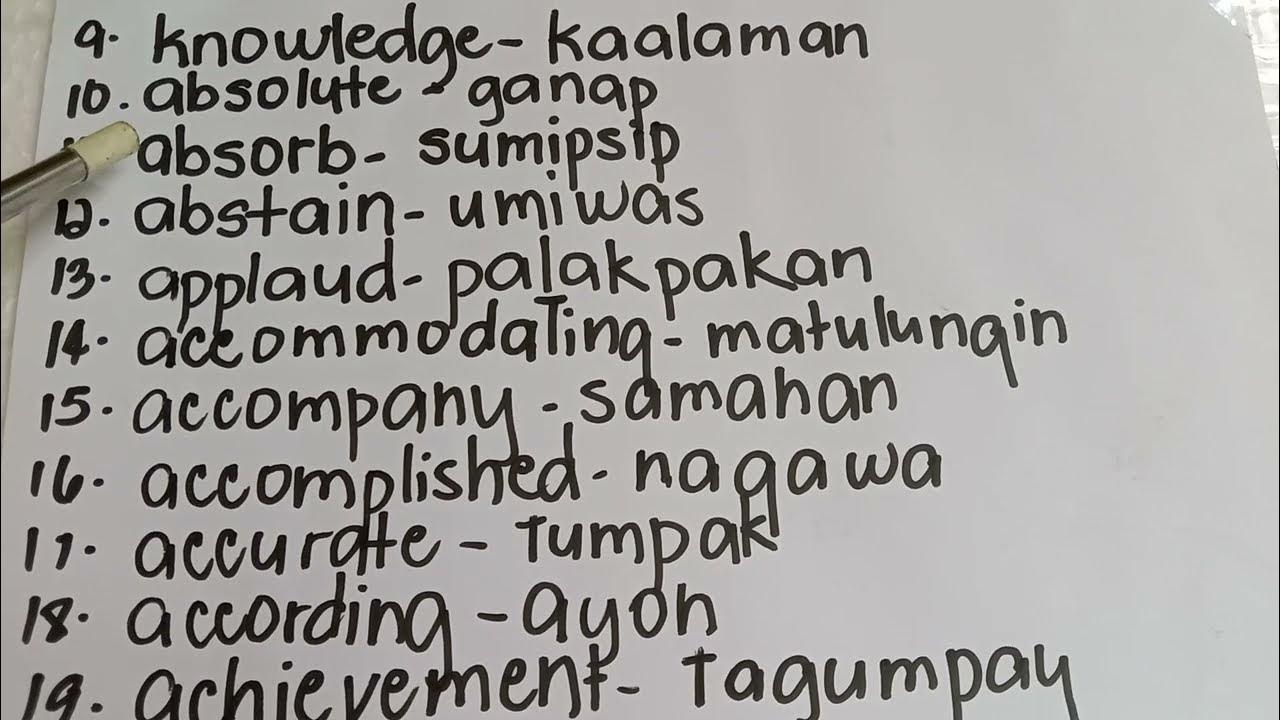 9. knowledge - kaalaman
10. absolute - ganap
absorb - sumipsip
12. abstain - umiwas
13. applaud - palakpakan
14. accommodating - matulungin
15. accompany - samahan
16. accomplished - nagawa
17. accurate - tumpak
18. according - ayon
19. achievement - tagumpay